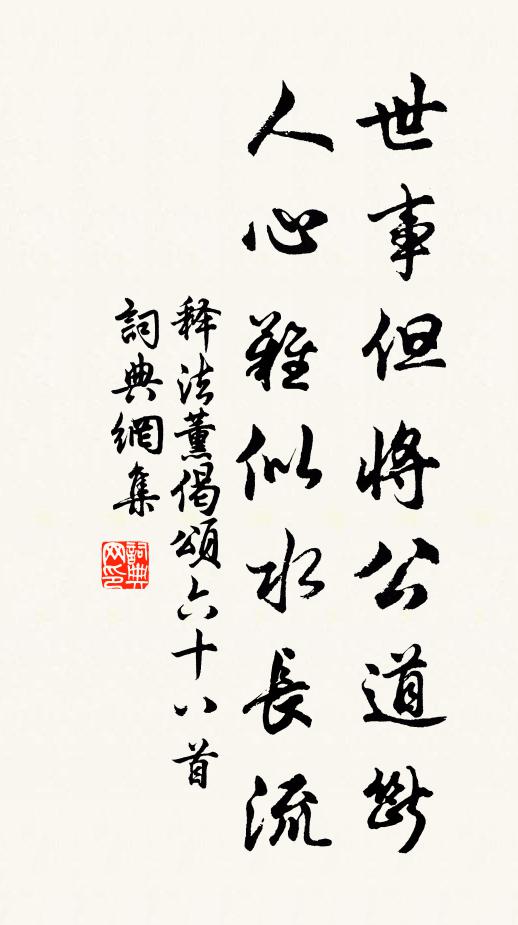 世事但將公道斷
人心難似水長流
释法薰偈頌六十八首
詞典網集
詞典网印